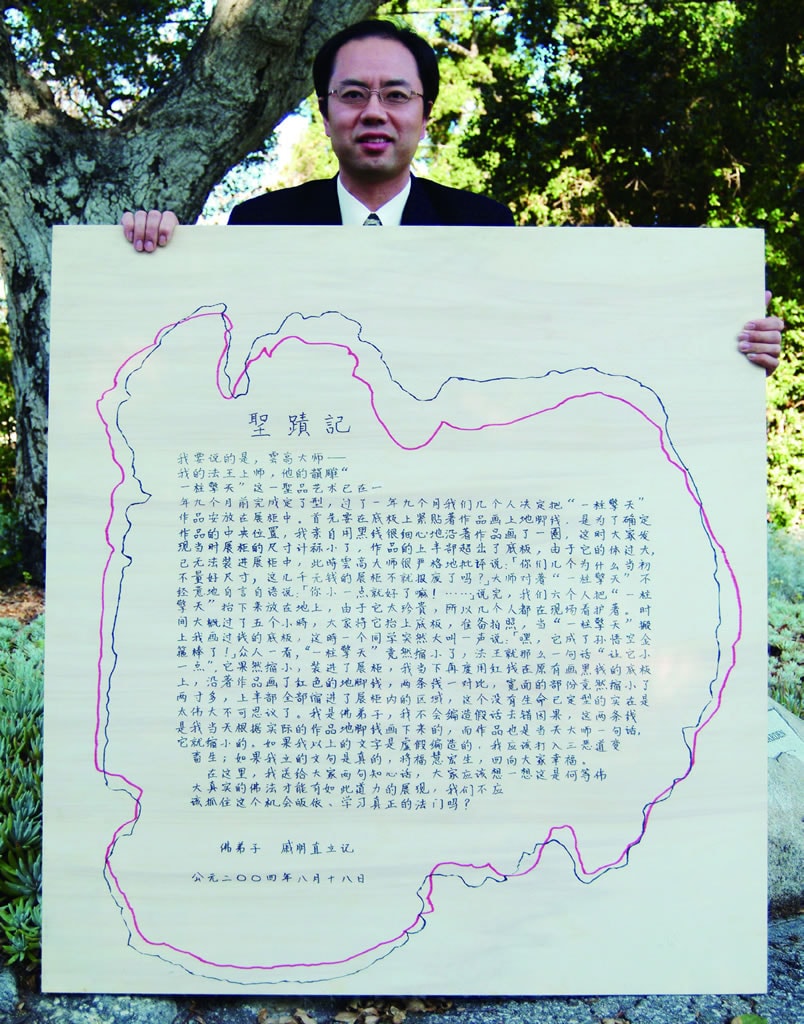 聖蹟記
我要说的是，雲高大师——
我的法王上师，他的韻雕“
一柱擎天”这一聖品艺术已在一
年九个月前完成定了型，过了一年九个月我们几个人决定把“一柱擎天”
作品安放在展柜中。首先要在底板上紧贴著作品画上地脚线，是为了确定
作品的中央位置，我亲自用黑线很细心地沿著作品画了一圈，这时大家发
现当时展柜的尺寸计算小了，作品的上半部超出了底板，由于它的体过大，
已无法裝进展柜中，此時雲高大师很严格地批评说：「你们几个为什么当初
不量好尺寸，这几千元钱的展柜不就报废了吗？」大师对著“一柱擎天”不
经意地自言自语说：「你小一点就好了嘛！……」说完，我们六个人把“一柱
擎天”抬下来放在地上，由于它太珍贵，所以几个人都在现场看护著。时
间大概过了五个小時，大家将它抬上底板，准备拍照，当“一柱擎天”搬
上我画过线的底板，这時一个同学突然大叫一声说：「嘿，它成了孙悟空金
箍棒了！」众人一看，“一柱擎天”竟然缩小了，法王就那么一句话“让它小
一点”，它果然缩小，装进了展柜，我当下再度用红线在原有画黑线的底板
上，沿著作品画了红色的地脚线，两条线一对比，宽面的部份竟然缩小了
两寸多，上半部全部缩进了展柜内的区域，这个没有生命已定型的实在是
太伟大不可思议了。我是佛弟子，我不会编造假话去错因果，这两条线
是我当天根据实际的作品地脚线画下来的，而作品也是当天大师一句话，
它就缩小的。如果我以上的文字是虚假编造的，我应该打入三恶道变
畜生；如果我立的文句是真的，将福慧宏生，回向大家幸福。
在这里，我送给大家两句知心话，大家应该想一想这是何等伟
大真实的佛法才能有如此道力的展现，我们不应
该抓住这个机会皈依、学习真正的法门吗？
佛弟子 戚朋直立记
公元二〇〇四年八月十八日